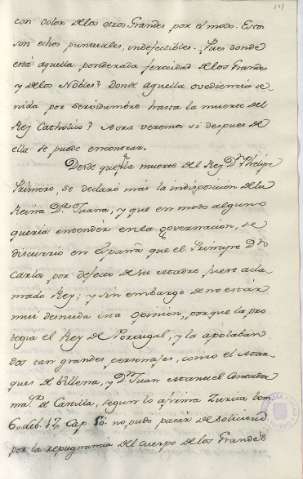 con dolor de los otros Grandes por el modo. Estos
son echos puntuales, indefectibles. Pues donde
está aquella ponderada ferocidad de los Grandes
y de los Nobles? Donde aquella ovediencia ser
vida por servidumbre hasta la muerte del
Rey Catholico? Aora veremos si despues de
ella se puede encontrar.
Desde que la muerte del Rey Dn. Phelipe
Primero, se declaró más la indisposicion de la
Reina Dª Juana, y que en modo alguno
queria entender en la governacion, se
discurrio en España que el Principe Dn.
Carlos por defecto de su Madre fuese acla
mado Rey; y sin embargo de no estár
mui desnuda esta opinion, porque la pro
tegia el Rey de Portugal, y la apoiaban
dos tan grandes personajes, como el Mar
ques de Villena, y Dn. Juan Manuel Contador
maʸᵒʳ de Castilla, segun lo afirma Zurita tom.
6. de lib. 7º Cap. no pudo pasar de
por la repugnancia del cuerpo de los Grandes